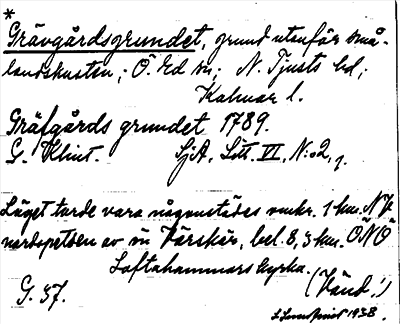 *
Grävgårdsgrundet, grund utanför små-
landskusten; Ö. Ed sn; N. Tjusts hd;
Kalmar l.
Gräfgårds grundet 1789.
G. Klint. SjA, Litt. VI, N:2, 1.
Läget torde vara någonstädes omkr. 1 km. NV
nordspetsen av ön Värskär, bel. 8,3 km. ÖNÖ
Loftahammars kyrka.
G. 37. (Vänd!)
1938.